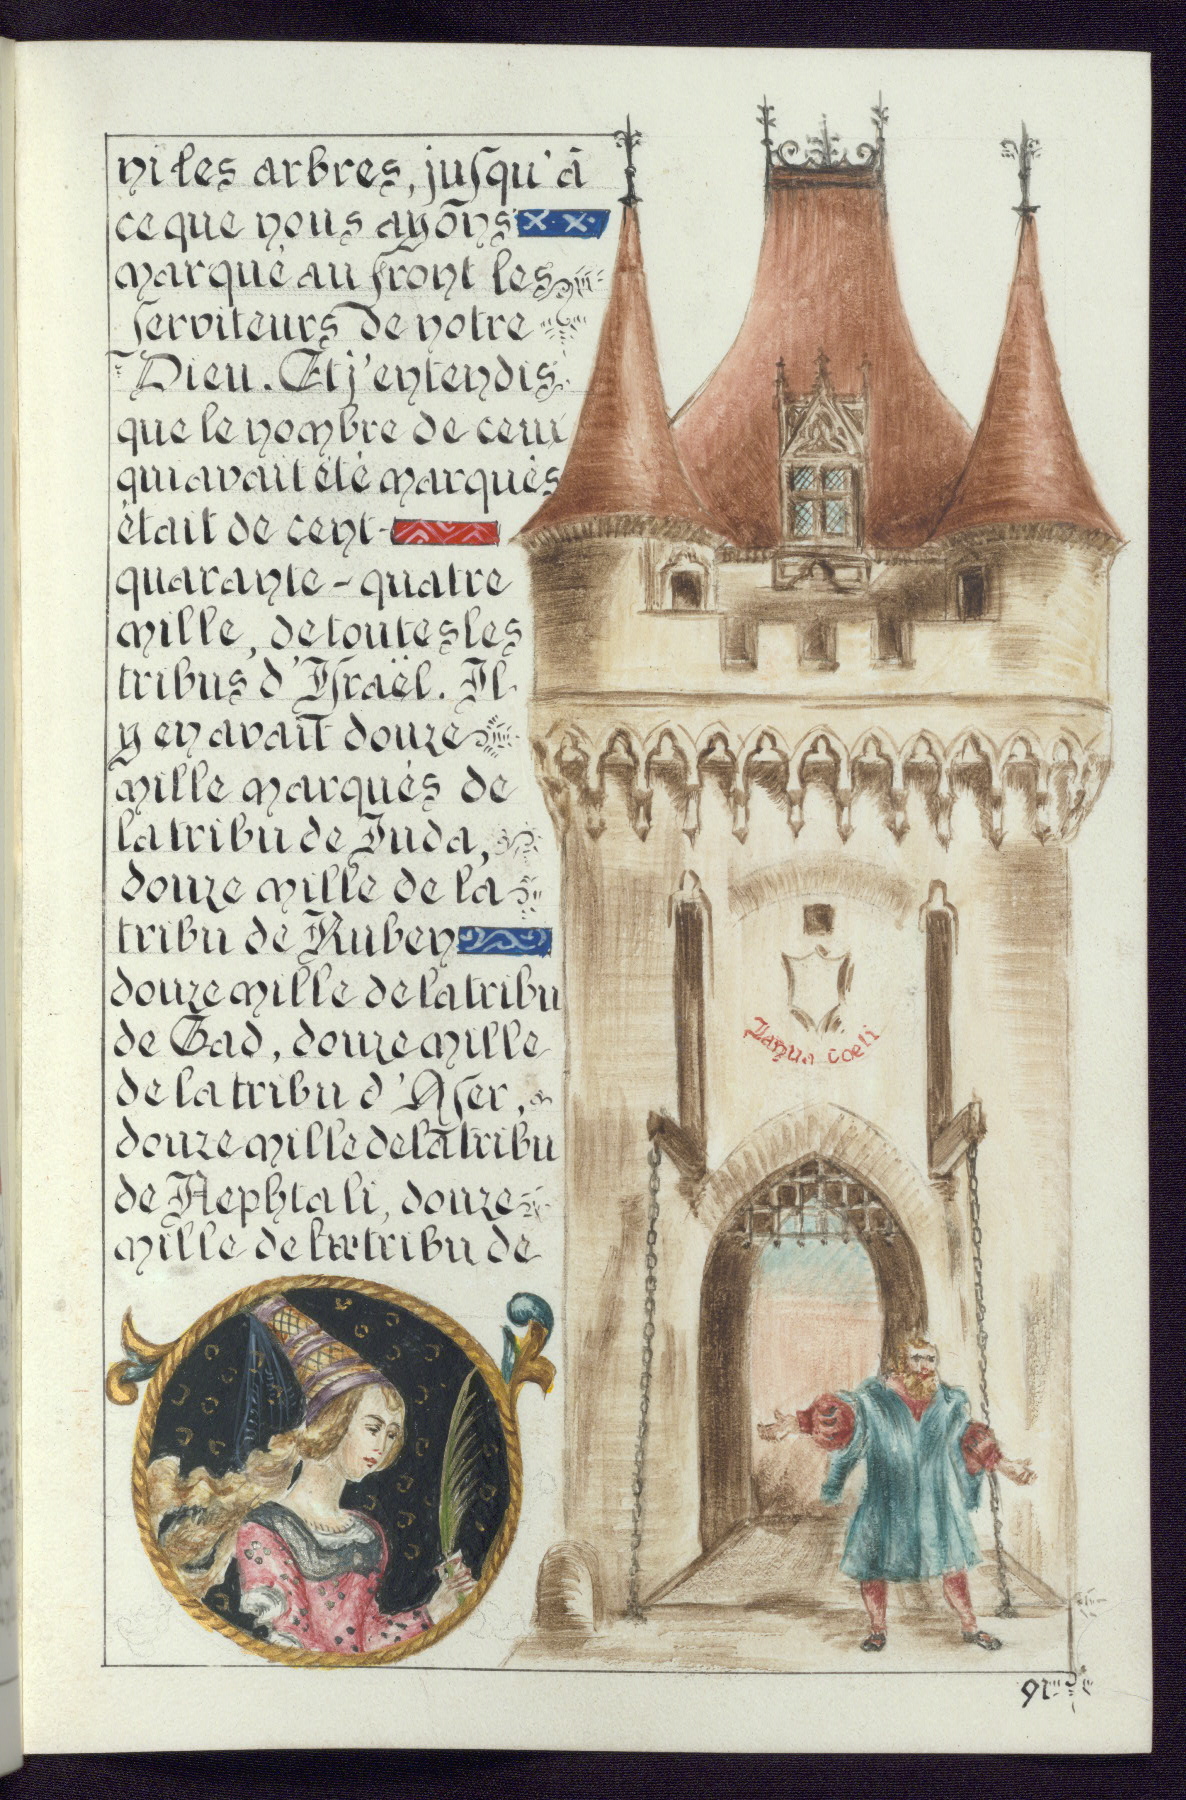 ni les arbres, jusqu'à
ce que nous ayõns
marqué au front les
serviteurs de notre
Dieu. Et j'entendis
que le nombre de ceux
qui avait été marqués
était de cent-
quarante-quatre
mille, de toutes les
tribus d'Israël. Il
y en avait douze
mille marqués de
la tribu de Juda,
douze mille de la
tribu de Ruben
douze mille de la tribu
de Gad, douze mille
de la tribu d'Aser,
douze mille de la tribu
de Nephtali, douze
mille de la tribu de
Janua coeli